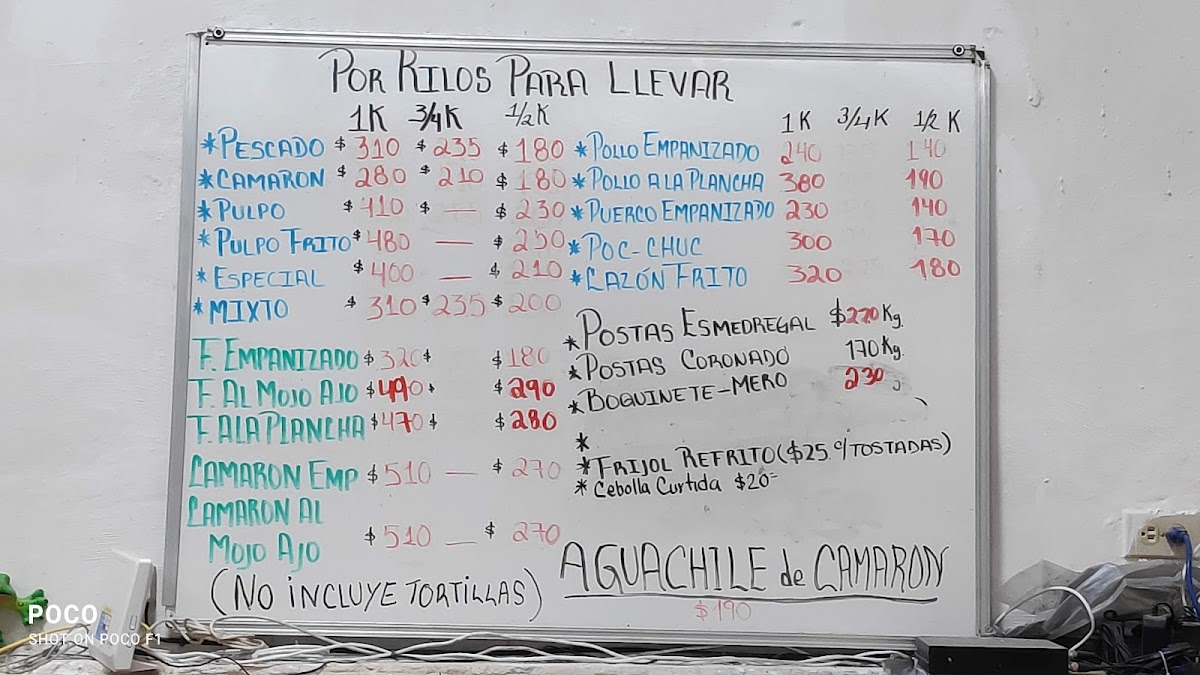 POR KILOS PARA LLEVAR
1K 3/4K 1/2K
*PESCADO $310 $235 $180
*CAMARON $280 $210 $180
*PULPO $410 $ — $230
*PULPO FRITO $480 — $250
*ESPECIAL $400 — $210
*MIXTO $310 $235 $200
F. EMPANIZADO $320 $ $180
F. AL MOJO AJO $490 $ $290
F. A LA PLANCHA $470 $ $280
CAMARON EMP $510 — $270
CAMARON AL
MOJO AJO $510 — $270
(NO INCLUYE TORTILLAS)
1K 3/4K 1/2K
*POLLO EMPANIZADO 240 140
*POLLO A LA PLANCHA 380 190
*PUERCO EMPANIZADO 230 140
*POC-CHUC 300 170
*CAZÓN FRITO 320 180
*POSTAS ESMEDREGAL $220 Kg.
*POSTAS CORONADO 170 Kg.
*BOQUINETE-MERO 230
*
*FRIJOL REFRITO ($25 c/TOSTADAS)
*Cebolla Curtida $20=
AGUACHILE de CAMARON
$190
POCO
SHOT ON POCO F1